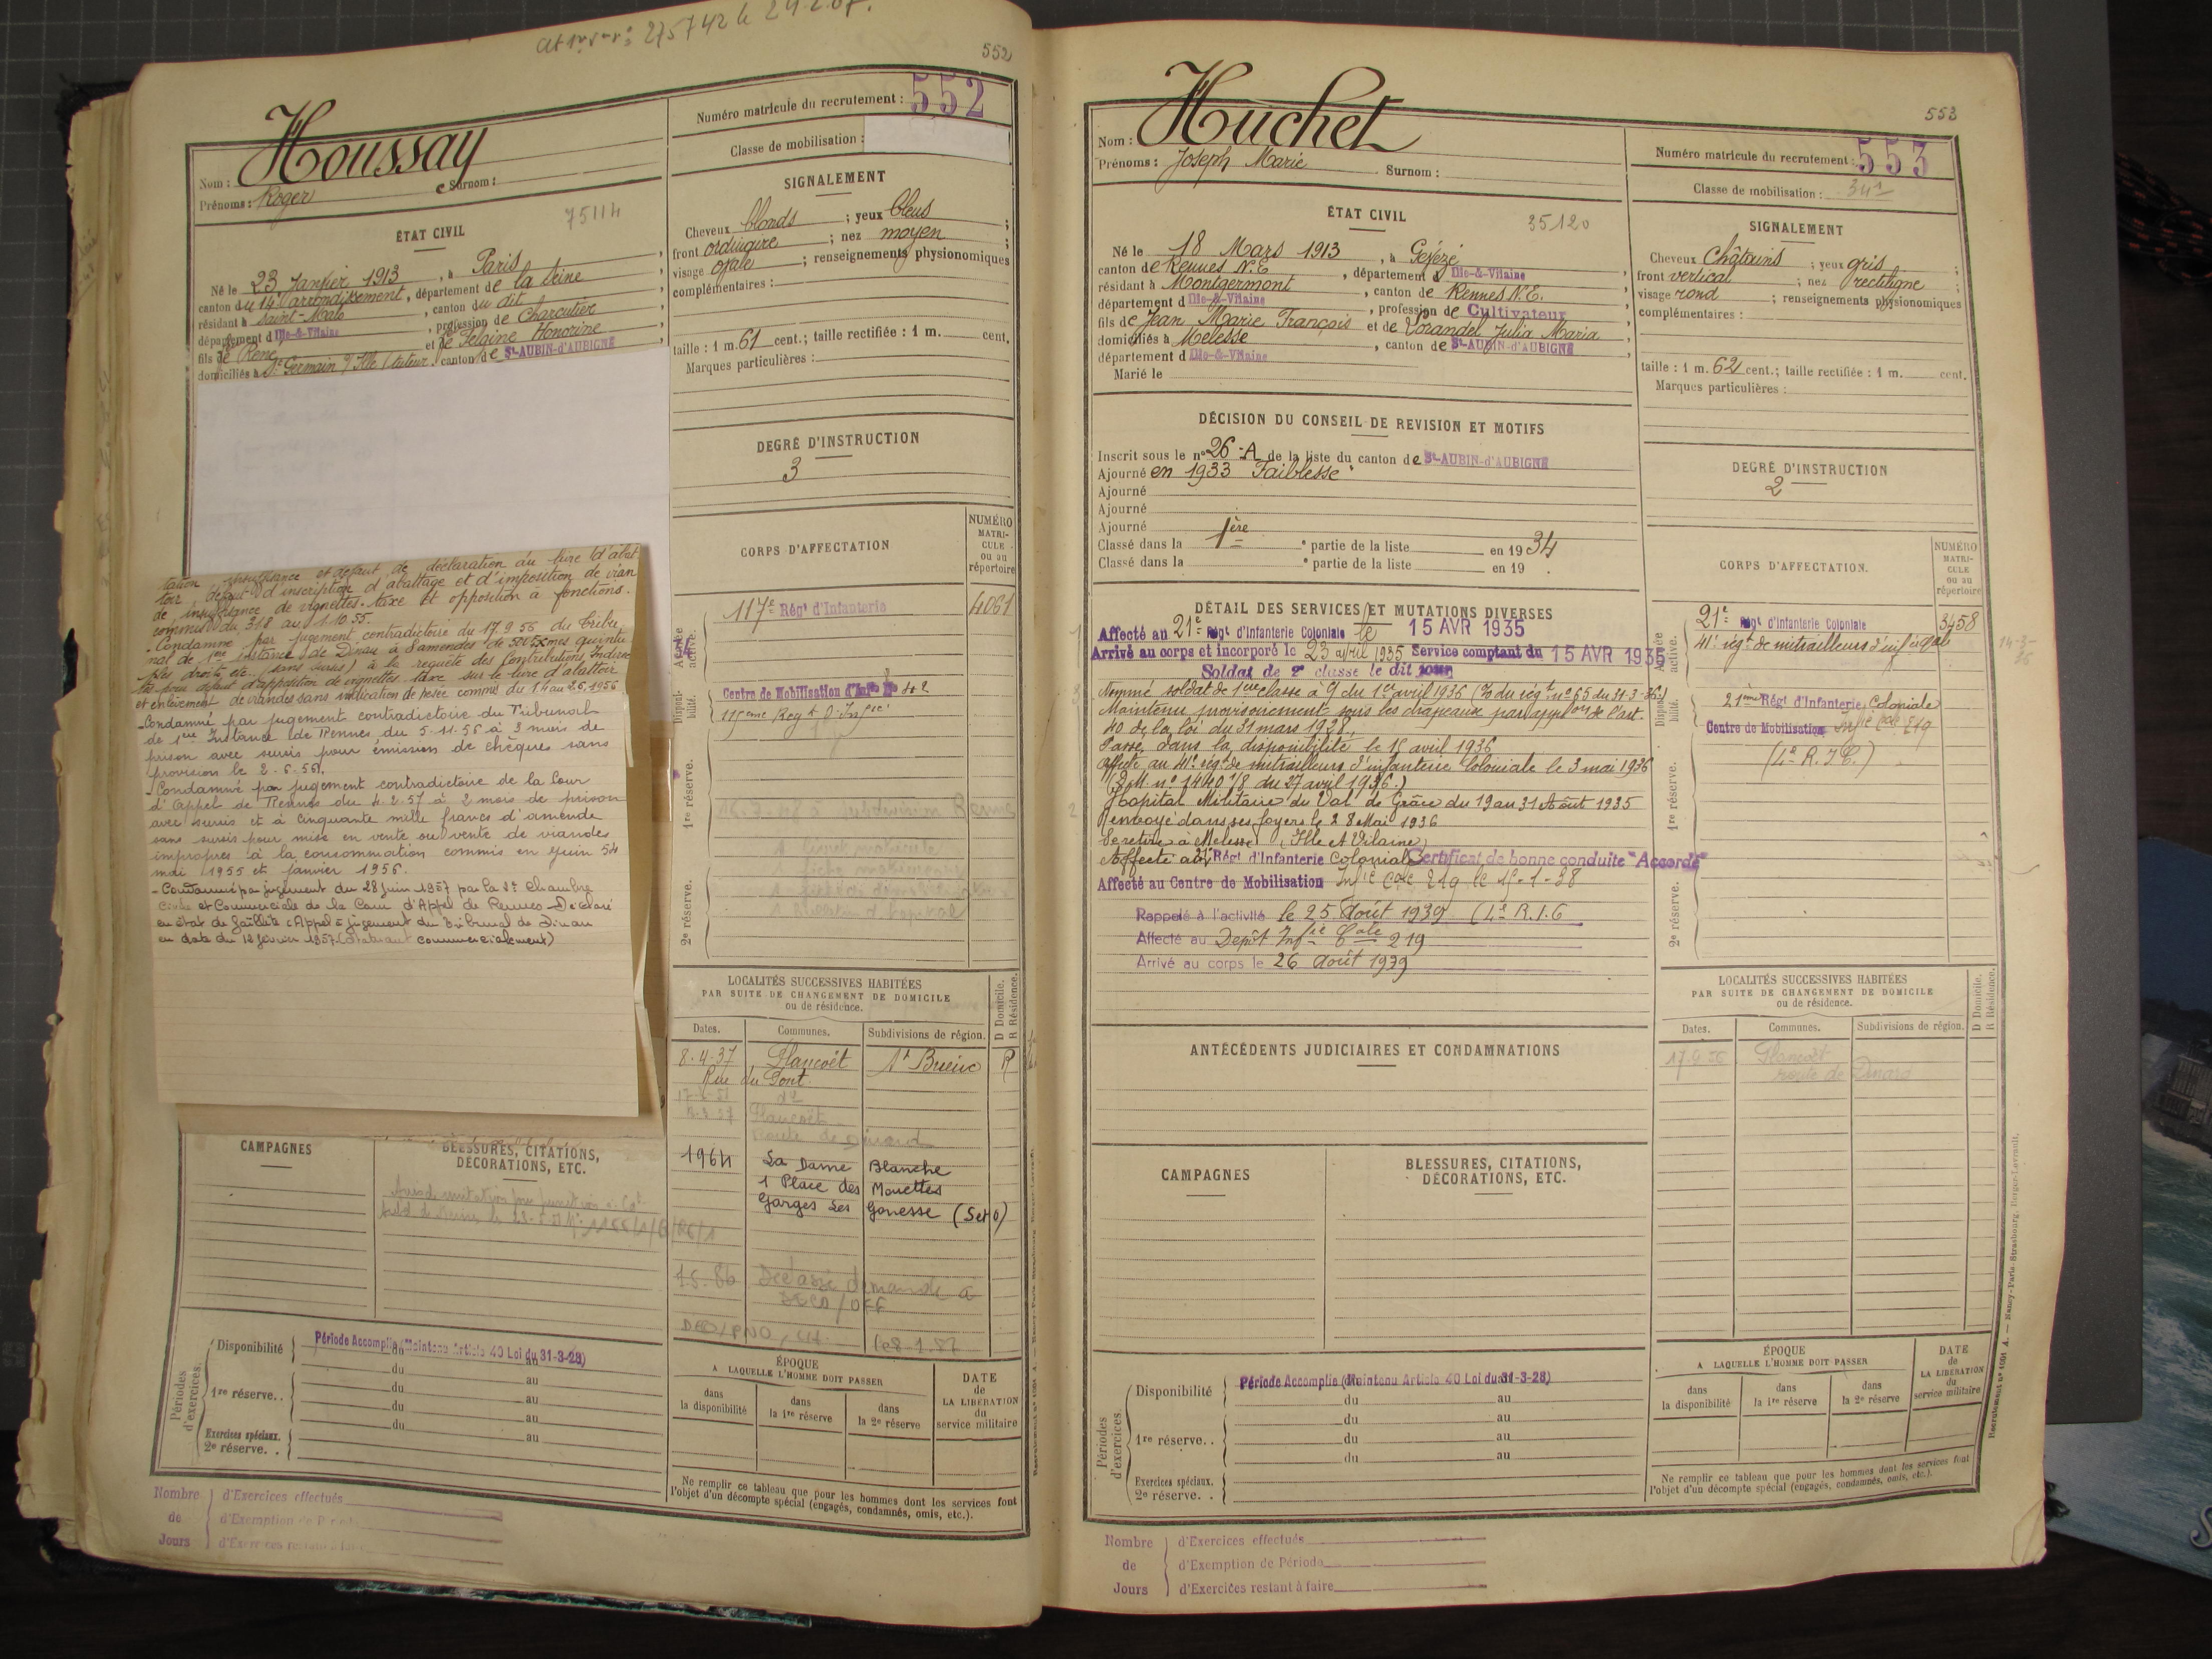 552
Numéro matricule du recrutement : 552
Classe de mobilisation :
Nom : Houssay
Prénoms : Roger
Surnom :
75114
ÉTAT CIVIL
Né le 23 Janvier 1913, à Paris
canton du 14e arrondissement, département de la Seine
résidant à Saint-Malo, canton du dit
département d Ille-&-Vilaine, profession de Charcutier
fils de René et de Honorine
domiciliés à St Germain s/ Ille (tuteur), canton de St-AUBIN-d'AUBIGNÉ
SIGNALEMENT
Cheveux blonds ; yeux bleus ;
front ordinaire ; nez moyen ;
visage ovale ; renseignements physionomiques
complémentaires :
taille : 1 m. 61 cent.; taille rectifiée : 1 m. cent.
Marques particulières :
DEGRÉ D'INSTRUCTION
3
CORPS D'AFFECTATION
NUMÉRO MATRI-CULE ou au répertoire
Armée active.
117e Régt d'Infanterie 4061
Disponibilité.
Centre de Mobilisation d'Infie No 42
115eme Regt d'Infie
1re réserve.
2e réserve.
tation insuffisance et défaut de déclaration au livre d'abat
toir, défaut d'inscription d'abattage et d'imposition de vian
de, insuffisance de vignettes-taxe et opposition à fonctions.
commis du 31.8 au 1.10.55.
- Condamné par jugement contradictoire du 17.9.56 du Tribu
nal de 1ère Instance de Dinan à 8 amendes de
droits, etc. (sans sursis) à la requête des Contributions Indirec
tes pour défaut d'apposition de vignettes-taxe sur le livre d'abattoir
et enlèvement de viandes sans indication de pesée commis du 1.4 au 25.1956
- Condamné par jugement contradictoire du Tribunal
de 1ère Instance de Rennes du 5-11-56 à 3 mois de
prison avec sursis pour émission de chèques sans
provision le 2-6-56.
- Condamné par jugement contradictoire de la Cour
d'Appel de Rennes du 4.2.57 à 2 mois de prison
avec sursis et à cinquante mille francs d'amende
sans sursis pour mise en vente ou vente de viandes
impropres à la consommation commis en Juin 54
mai 1955 et janvier 1956.
- Condamné par jugement du 28 juin 1957 par la 2e Chambre
Civile et Commerciale de la Cour d'Appel de Rennes - Déclaré
en état de faillite (Appel à jugement du Tribunal de Dinan
en date du 12 février 1957 (statuant commercialement)
LOCALITÉS SUCCESSIVES HABITÉES
PAR SUITE DE CHANGEMENT DE DOMICILE
ou de résidence.
Dates. Communes. Subdivisions de région. D Domicile. R Résidence.
8-4-37 Plancoët St Brieuc R
Rue du Pont.
Plancoët
Route de Dinard
1964 La Dame Blanche
1 Place des Mouettes
Garges Les Gonesse (Set O)
CAMPAGNES
BLESSURES, CITATIONS,
DÉCORATIONS, ETC.
Périodes d'exercices.
Disponibilité Période Accomplie (Maintenu Article 40 Loi du 31-3-28)
du au
1re réserve. . du au
du au
du au
Exercices spéciaux.
2e réserve. .
ÉPOQUE
A LAQUELLE L'HOMME DOIT PASSER
dans la disponibilité
dans la 1re réserve
dans la 2e réserve
DATE de LA LIBÉRATION du service militaire
Ne remplir ce tableau que pour les hommes dont les services font
l'objet d'un décompte spécial (engagés, condamnés, omis, etc.).
Nombre de Jours
d'Exercices effectués
d'Exemption de Période
d'Exercices restant à faire
553
Nom : Huchet
Prénoms : Joseph Marie Surnom :
Numéro matricule du recrutement : 553
Classe de mobilisation : 34
ÉTAT CIVIL
35120
Né le 18 Mars 1913, à Gévezé
canton de Rennes N.E, département d Ille-&-Vilaine
résidant à Montgermont, canton de Rennes N.E.
département d Ille-&-Vilaine, profession de Cultivateur
fils de Jean Marie François et de Lorandel Julia Maria
domiciliés à Melesse, canton de St-AUBIN-d'AUBIGNÉ
département d Ille-&-Vilaine
Marié le
SIGNALEMENT
Cheveux Châtains ; yeux gris ;
front vertical ; nez rectiligne ;
visage rond ; renseignements physionomiques
complémentaires :
taille : 1 m. 62 cent.; taille rectifiée : 1 m. cent.
Marques particulières :
DÉCISION DU CONSEIL DE REVISION ET MOTIFS
Inscrit sous le n° 26-A de la liste du canton de St-AUBIN-d'AUBIGNÉ
Ajourné en 1933 "Faiblesse"
Ajourné
Ajourné
Ajourné
Classé dans la 1ère partie de la liste en 1934
Classé dans la e partie de la liste en 19 .
DEGRÉ D'INSTRUCTION
2
DÉTAIL DES SERVICES ET MUTATIONS DIVERSES
Affecté au 21e Régt d'Infanterie Coloniale le 15 AVR 1935
Arrivé au corps et incorporé le 23 avril 1935 Service comptant du 15 AVR 1935
Soldat de 2e classe le dit jour
Nommé soldat de 1ère classe à Cj du 1er avril 1936 (O du régt n° 65 du 31-3-36)
Maintenu provisoirement sous les drapeaux par appon de l'art.
40 de la loi du 31 mars 1928.
Passé dans la disponibilité le 15 avril 1936
affecté au 41e régt de mitrailleurs d'infanterie Coloniale le 3 mai 1936
(D.M n° 1440 1/8 du 27 avril 1936.)
Hôpital Militaire du Val de Grâce du 19 au 31 Août 1935
Renvoyé dans ses foyers le 28 Mai 1936
Se retire à Melesse (Ille et Vilaine)
Affecté au 21e Régt d'Infanterie Coloniale Certificat de bonne conduite "Accordé"
Affecté au Centre de Mobilisation Infie Cale 219 le 15-1-38
Rappelé à l'activité le 25 Août 1939 (4e R.I.C
Affecté au Dépôt Infie Cale 219
Arrivé au corps le 26 Août 1939
CORPS D'AFFECTATION.
NUMÉRO MATRI-CULE ou au répertoire
Armée active.
21e Régt d'Infanterie Coloniale 3458
41e régt de mitrailleurs d'infie Cale
Disponibilité.
21ème Régt d'Infanterie Coloniale
Centre de Mobilisation Infie Cale 219
(4e R.I.C.)
1re réserve.
2e réserve.
ANTÉCÉDENTS JUDICIAIRES ET CONDAMNATIONS
LOCALITÉS SUCCESSIVES HABITÉES
PAR SUITE DE CHANGEMENT DE DOMICILE
ou de résidence.
Dates. Communes. Subdivisions de région. D Domicile. R Résidence.
17.9.56 Plancoët
route de Dinard
CAMPAGNES
BLESSURES, CITATIONS,
DÉCORATIONS, ETC.
Périodes d'exercices.
Disponibilité Période Accomplie (Maintenu Article 40 Loi du 31-3-28)
du au
1re réserve. . du au
du au
du au
Exercices spéciaux.
2e réserve. .
ÉPOQUE
A LAQUELLE L'HOMME DOIT PASSER
dans la disponibilité
dans la 1re réserve
dans la 2e réserve
DATE de LA LIBÉRATION du service militaire
Ne remplir ce tableau que pour les hommes dont les services font
l'objet d'un décompte spécial (engagés, condamnés, omis, etc.).
Nombre de Jours
d'Exercices effectués
d'Exemption de Période
d'Exercices restant à faire